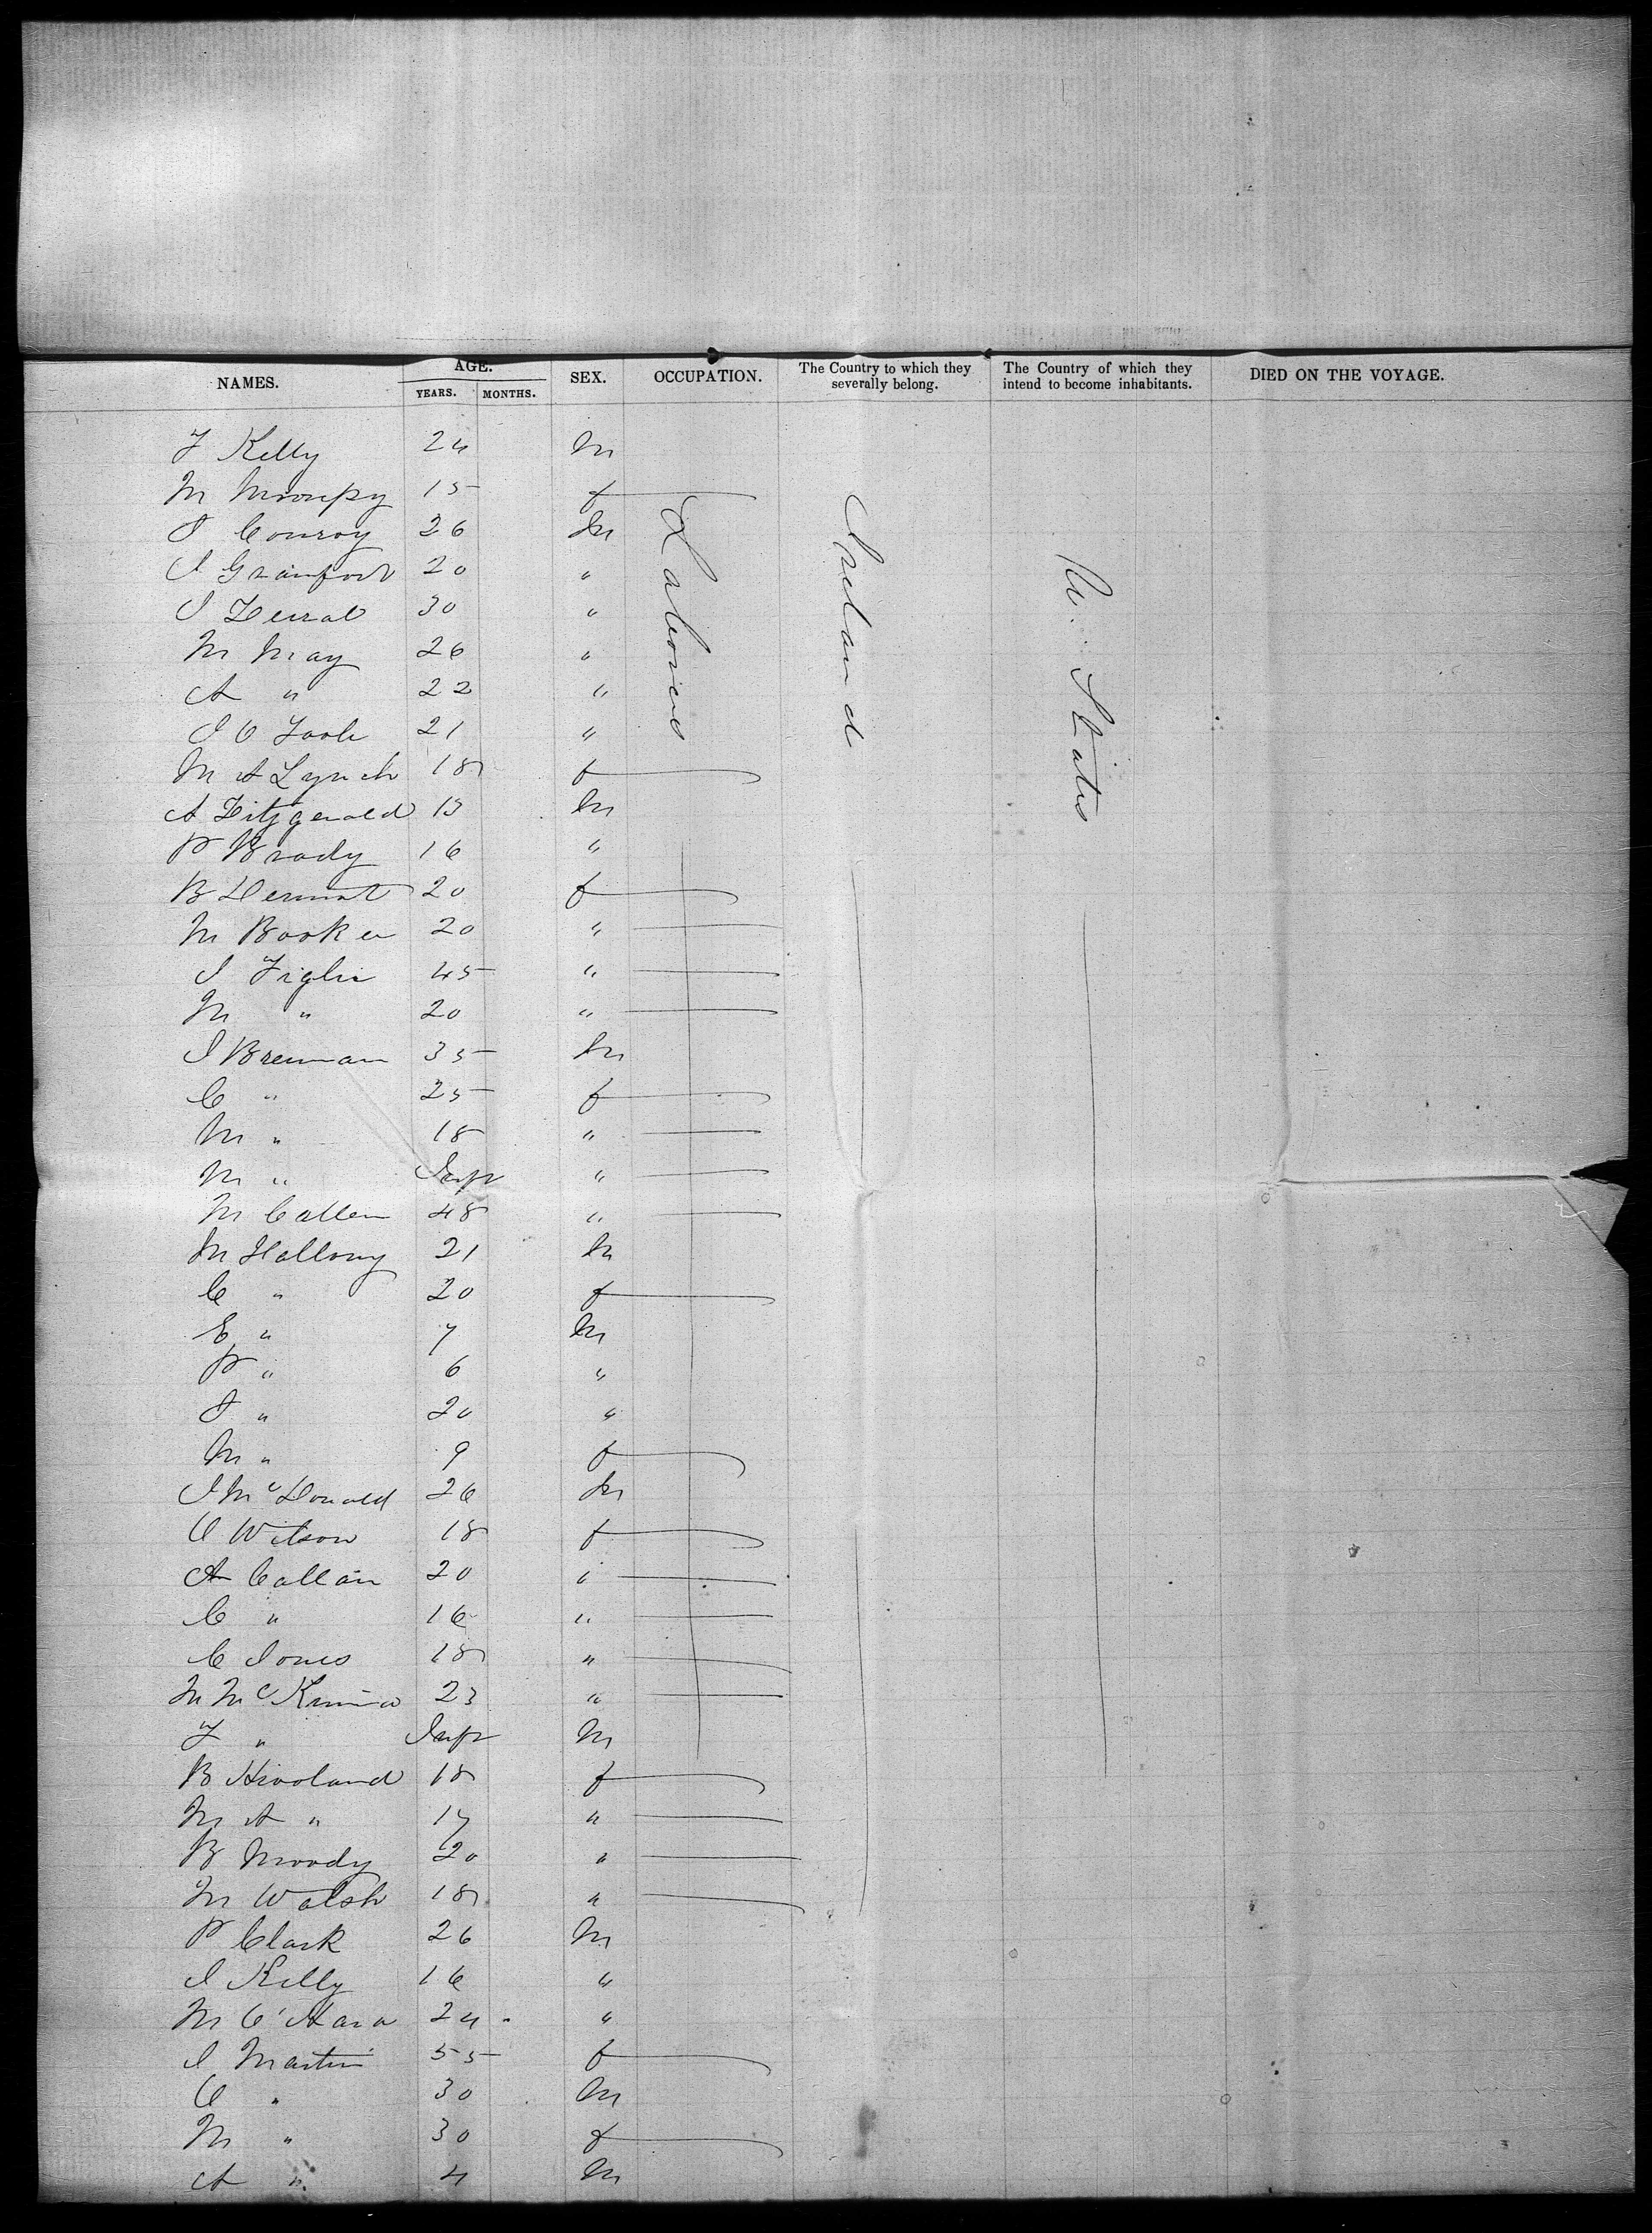 NAMES. AGE. SEX. OCCUPATION. The Country to which they severally belong. The Country of which they intend to become inhabitants. DIED ON THE VOYAGE.
YEARS. MONTHS.
Labourers
Ireland
U. States
F Kelly 24 M
M 15 f
J Conroy 26 M
J 20 "
J 30 "
M May 26 "
A " 22 "
J O Toole 21 "
M A Lynch 18 f
A Fitzgerald 13 M
P Brady 16 "
B Dermot 20 f
M Booker 20 "
J 45 "
M " 20 "
J Brennan 35 M
C " 25 f
M " 18 "
M " Inft "
M Callen 48 "
M Hallony 21 M
C " 20 f
E " 7 M
P " 6 "
J " 20 "
M " 9 f
J McDonald 26 M
C Wilson 18 f
A Callan 20 "
C " 16 "
C Jones 18 "
M McKenna 23 "
F " Inft M
B 18 f
M A " 17 "
B Moody 20 "
M Walsh 18 "
P Clark 26 M
J Kelly 16 "
M O'Hara 24 "
J Martin 55 f
O " 30 M
M " 30 f
A " 4 M